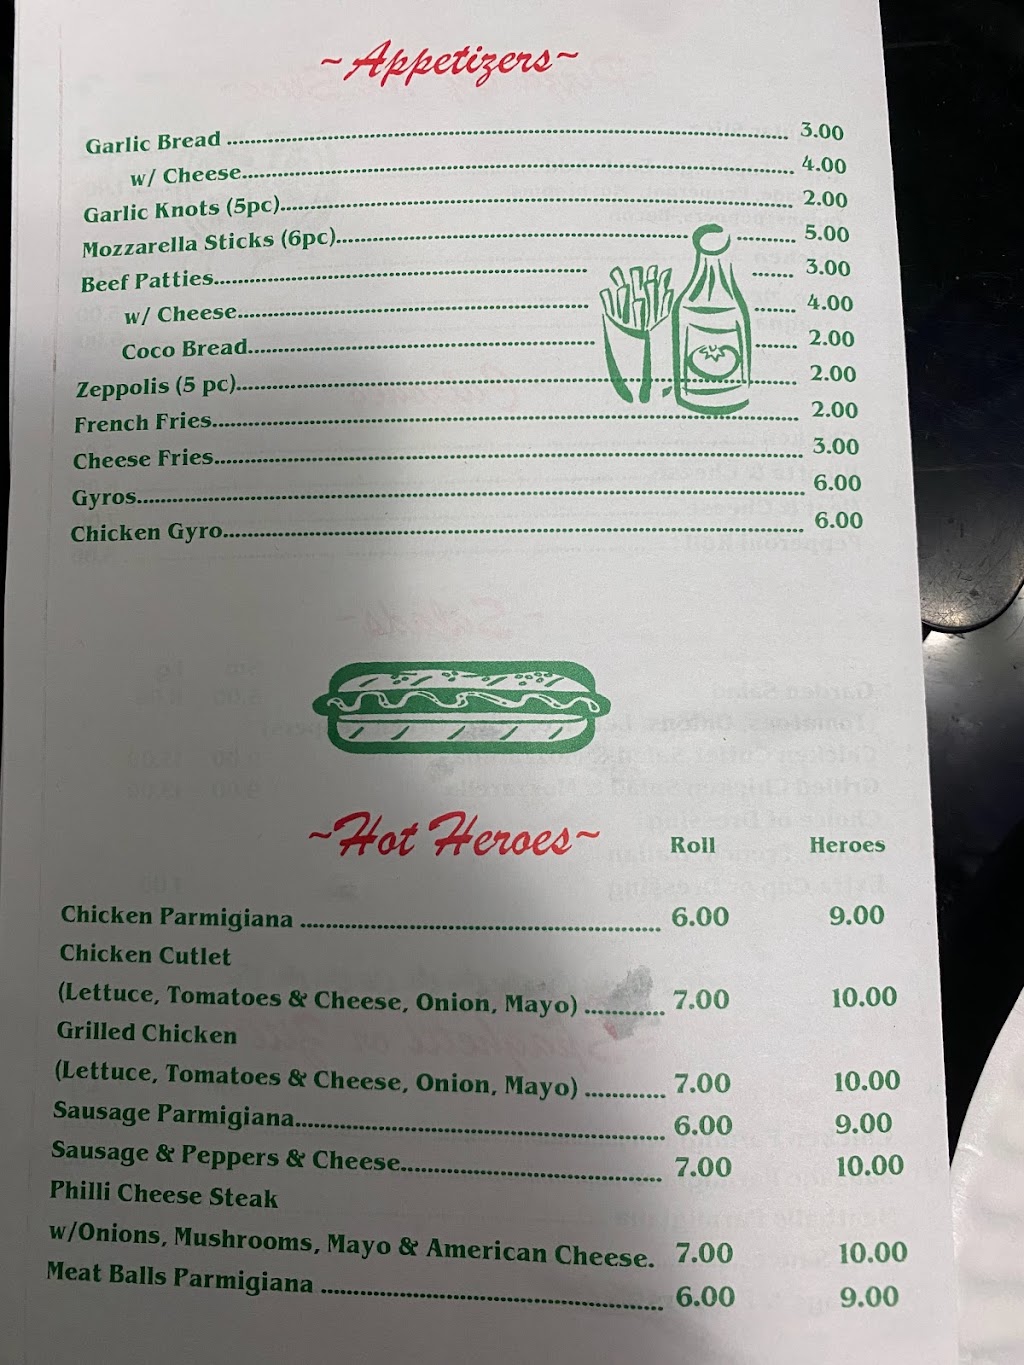 ~Appetizers~
Garlic Bread ........ 3.00
w/ Cheese........ 4.00
Garlic Knots (5pc)........ 2.00
Mozzarella Sticks (6pc)........ 5.00
Beef Patties........ 3.00
w/ Cheese........ 4.00
Coco Bread........ 2.00
Zeppolis (5 pc)........ 2.00
French Fries........ 2.00
Cheese Fries........ 3.00
Gyros........ 6.00
Chicken Gyro........ 6.00
~Hot Heroes~ Roll Heroes
Chicken Parmigiana ........ 6.00 9.00
Chicken Cutlet
(Lettuce, Tomatoes & Cheese, Onion, Mayo) ........ 7.00 10.00
Grilled Chicken
(Lettuce, Tomatoes & Cheese, Onion, Mayo) ........ 7.00 10.00
Sausage Parmigiana........ 6.00 9.00
Sausage & Peppers & Cheese........ 7.00 10.00
Philli Cheese Steak
w/Onions, Mushrooms, Mayo & American Cheese. 7.00 10.00
Meat Balls Parmigiana ........ 6.00 9.00